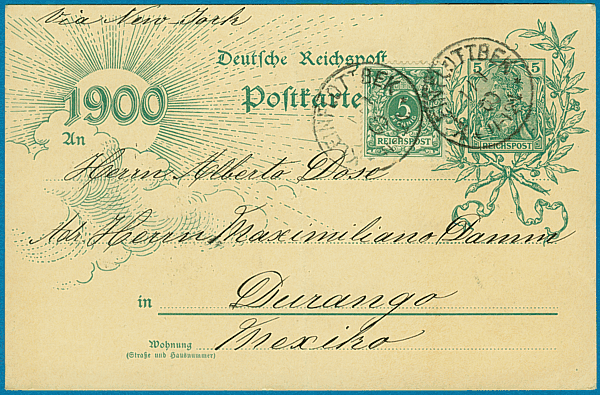 Via New York
Deutsche Reichspost
Postkarte
1900
5
REICHSPOST
5 5
REICHSPOST
An
Herrn Alberto Dose
Adr. Herrn Maximiliano Damm
in Durango
Mexiko
Wohnung
(Straße und Hausnummer)